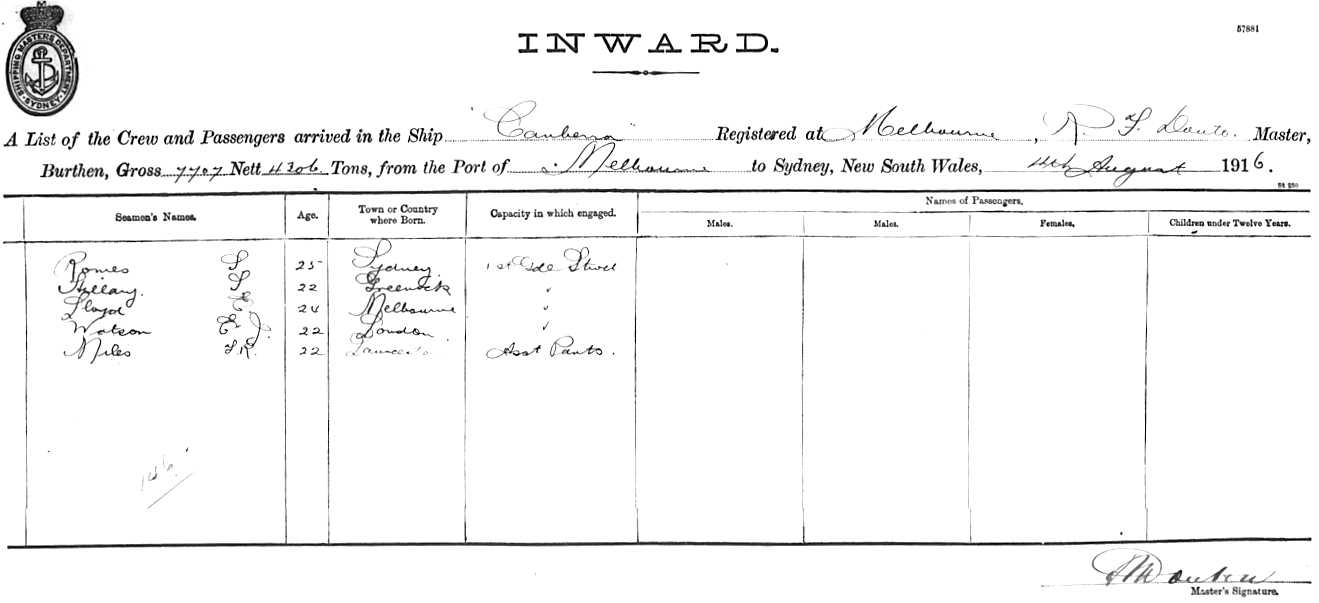 SHIPPING MASTERS DEPARTMENT
SYDNEY
INWARD.
57881
A List of the Crew and Passengers arrived in the Ship "Canberra" Registered at Melbourne, R. F. Master,
Burthen, Gross 7707 Nett 4306 Tons, from the Port of Melbourne to Sydney, New South Wales, 14th August 1916.
Seamen's Names. Age. Town or Country where Born. Capacity in which engaged. Names of Passengers.
Males. Males. Females. Children under Twelve Years.
S 25 Sydney 1st Sde Stwd
Hillary. S 22 Greenock "
Lloyd E 24 Melbourne "
Watson E J. 22 London "
Miles 22 Asst Panto.
146
Master's Signature.